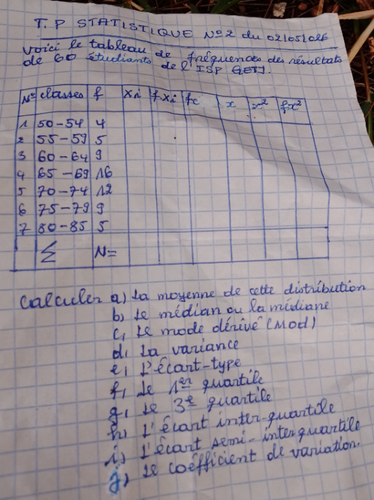 T.P STATISTIQUE N°2 du 02/05/026
Voici le tableau de fréquences des résultats
de 60 étudiants de l'ISP GETY.
N° classes f Xi f Xi fc x x² fx²
1 50-54 4
2 55-59 5
3 60-64 9
4 65-69 16
5 70-74 12
6 75-79 9
7 80-85 5
Σ N=
Calculer a) La moyenne de cette distribution
b) Le médian ou la médiane
c) Le mode dérivé (Mod)
d) La variance
e) L'écart-type
f) Le 1er quartile
g) Le 3e quartile
h) L'écart inter-quartile
i) L'écart semi-interquartile
j) Le coefficient de variation.